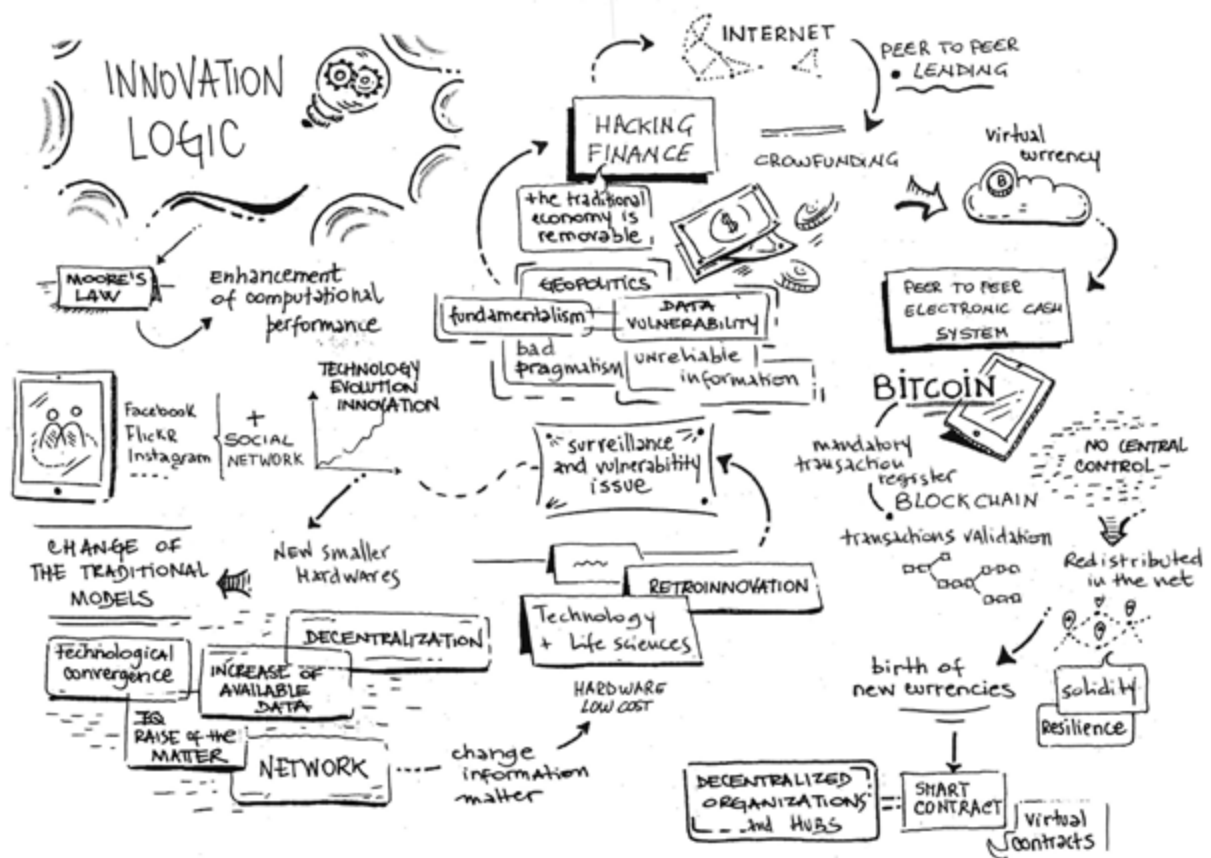 INNOVATION
LOGIC
MOORE'S
LAW
enhancement
of computational
performance
Facebook
FlickR
Instagram
+
SOCIAL
NETWORK
TECHNOLOGY
EVOLUTION
INNOVATION
NEW smaller
HARDWARES
CHANGE OF
THE TRADITIONAL
MODELS
technological
convergence
DECENTRALIZATION
INCREASE OF
AVAILABLE
DATA
IQ
RAISE of the
MATTER
NETWORK
change
information
matter
HARDWARE
LOW COST
Technology
+ Life sciences
RETROINNOVATION
surveillance
and vulnerability
issue
HACKING
FINANCE
the traditional
economy is
removable
GEOPOLITICS
fundamentalism
DATA
VULNERABILITY
bad
pragmatism
unreliable
information
INTERNET
PEER TO PEER
LENDING
CROWFUNDING
$
virtual
currency
B
PEER TO PEER
ELECTRONIC CASH
SYSTEM
BITCOIN
mandatory
transaction
register
BLOCKCHAIN
transactions validation
NO CENTRAL
CONTROL -
Redistributed
in the net
solidity
Resilience
birth of
new currencies
SMART
CONTRACT
virtual
contracts
DECENTRALIZED
ORGANIZATIONS
and HUBS